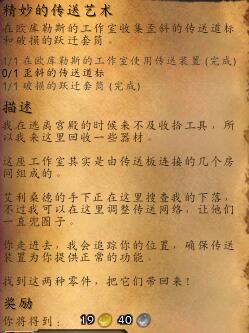 精妙的传送艺术
在欧库勒斯的工作室收集歪斜的传送道标
和破损的跃迁套筒。
1/1 在欧库勒斯的工作室使用传送装置 (完成)
0/1 歪斜的传送道标
1/1 破损的跃迁套筒 (完成)
描述
我在逃离宫殿的时候来不及收拾工具,所
以我来这里回收一些器材。
这座工作室其实是由传送板连接的几个房
间组成的。
艾利桑德的手下正在这里搜查我的下落,
不过我可以在这里调整传送网络,让他们
一直兜圈子。
你走进去,我会追踪你的位置,确保传送
装置为你提供正常的功能。
找到这两种零件,把它们带回来!
奖励
你将得到: 19 40